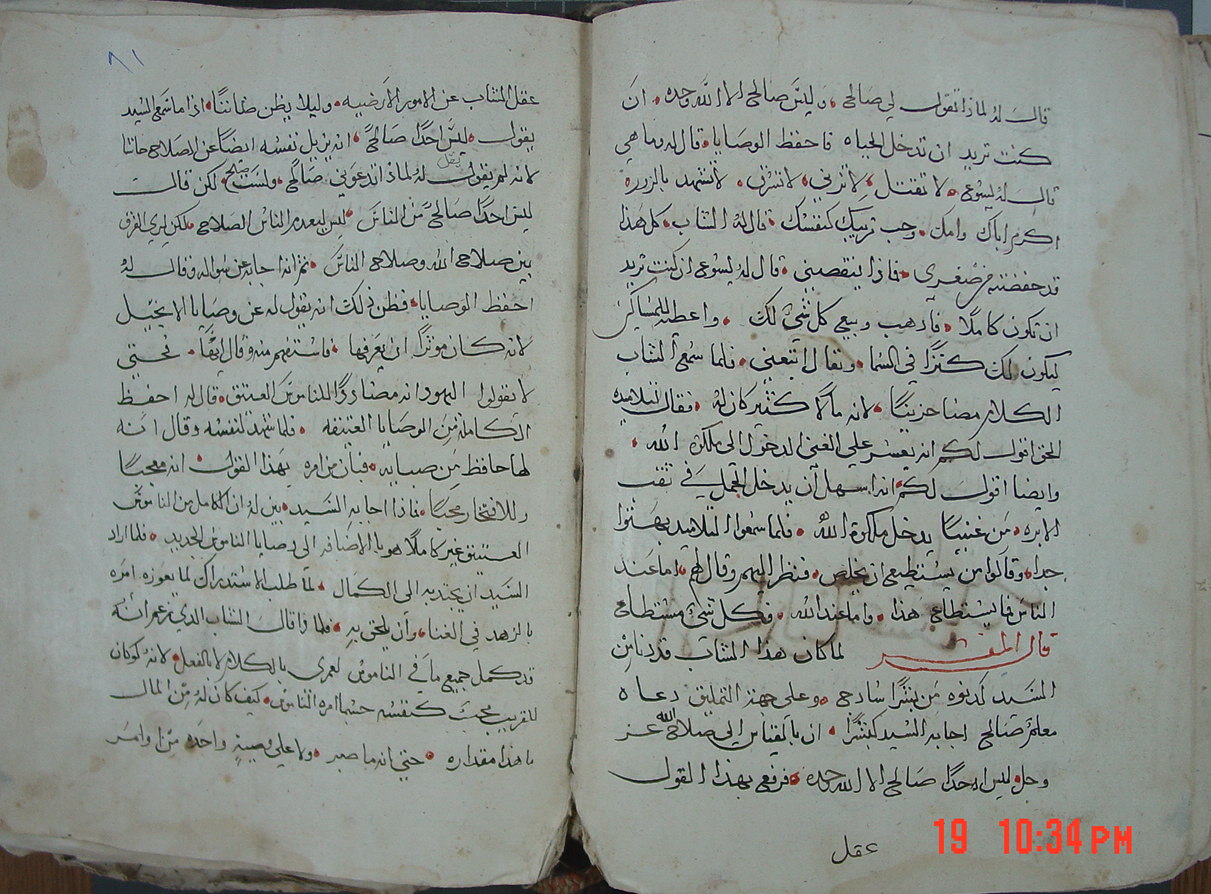 قال له لماذا تقول لي صالحي • وليس صالحي الا الله وحده • ان
كنت تريد ان تدخل الحياه فاحفظ الوصايا • قال له وما هي
قال له يسوع • لا تقتل • لا تزني • لا تسرق • لا تشهد بالزور •
اكرم اباك وامك • وحب قريبك كنفسك • قال له الشاب • كل هذا
قد حفضته من صغري • فاذا ينقصني • قال له يسوع ان كنت تريد
ان تكون كاملا • فاذهب وبيع كل شي لك • واعطه للمساكين
ليكون لك كنزا في السما • وتعال اتبعني • فلما سمع الشاب
الكلام مضا حزينا • لانه مالا كثير كان له • فقال لتلاميده
الحق اقول لكم انه يعسر علي الغني الدخول الي ملكوة الله •
وايضا اقول لكم انه اسهل ان يدخل الجمل في ثقب
الابره • من غنيا يدخل ملكوة الله • فلما سمعوا التلاميد بهتوا
جدا • وقالوا من يستطيع ان يخلص • فنظر اليهم وقال لهم • اما عند
الناس فما يستطاع هذا • واما عند الله • فكل شي مستطاع
قال المفسر لما كان هذا الشاب قد دنا من
السيد كدنوه من بشرا سادج • وعلي جهة التمليق دعاه
معلم صالحي اجابه السيد كبشرا • ان بالقياس الي صلاح الله عز
وجل • ليس احدا صالحي الا الله وحده • فرفع بهذا القول
عقل
٨١
عقل الشاب عن الامور الارضيه • وليلا يظن ظاننا • اذا ما سمع السيد
يقول • ليس احدا صالحي • انه يزيل نفسه ايضا عن الصلاح حاشا
لانه لم يقول يقل له لماذا تدعوني صالحي • ولست صالح • لكن قال
ليس احدا صالحي من الناس • ليس ليعدم الناس الصلاح • لكن ليري الفرق
بين صلاح الله وصلاح الناس • ثم انه اجابه عن سواله وقال له
احفظ الوصايا • فظن ذلك انه يقول له عن وصايا الانجيل
لانه كان موثرا ان يعرفها • فاستفهم منه وقال ايها • فحتي
لا يقولوا اليهود انه مضاددا للناموس العتيق • قال له احفظ
الكامله من الوصايا العتيقه • فلما شهد لنفسه وقال انه
لها حافظ من صبايه • فبان من امره بهذا القول انه معجبا
وللافتخار محبا • فاذا اجابه السيد • بين له ان الكامل من الناموس
العتيق غير كاملا هو بالاضافه الي وصايا الناموس الجديد • فلما اراد
السيد ان يجتذبه الي الكمال • لما طلب الاستدراك لما يعوزه امره
بالزهد في الغنا • وان يلحق به • فلما ذا قال الشاب الذي زعم انه
قد كمل جميع ما في الناموس لعمري بالكلام لا بالفعل • لانه لو كان
للقريب محب كنفسه حسبما امره الناموس • كيف كان له من المال
ما هذا مقداره • حتي انه ما صبر • ولا علي وصية واحده من اوامر
19 10:34 PM